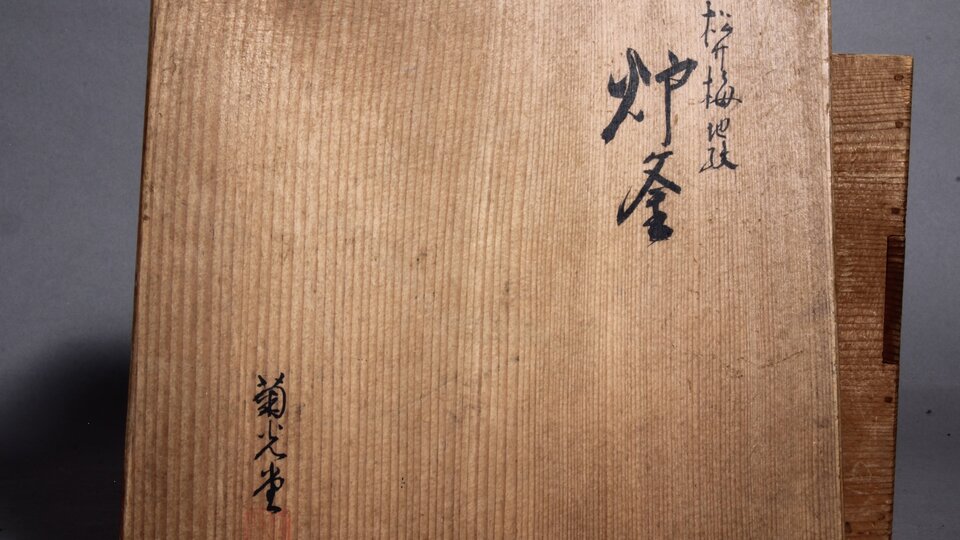 松竹梅地紋
炉釜
菊光堂